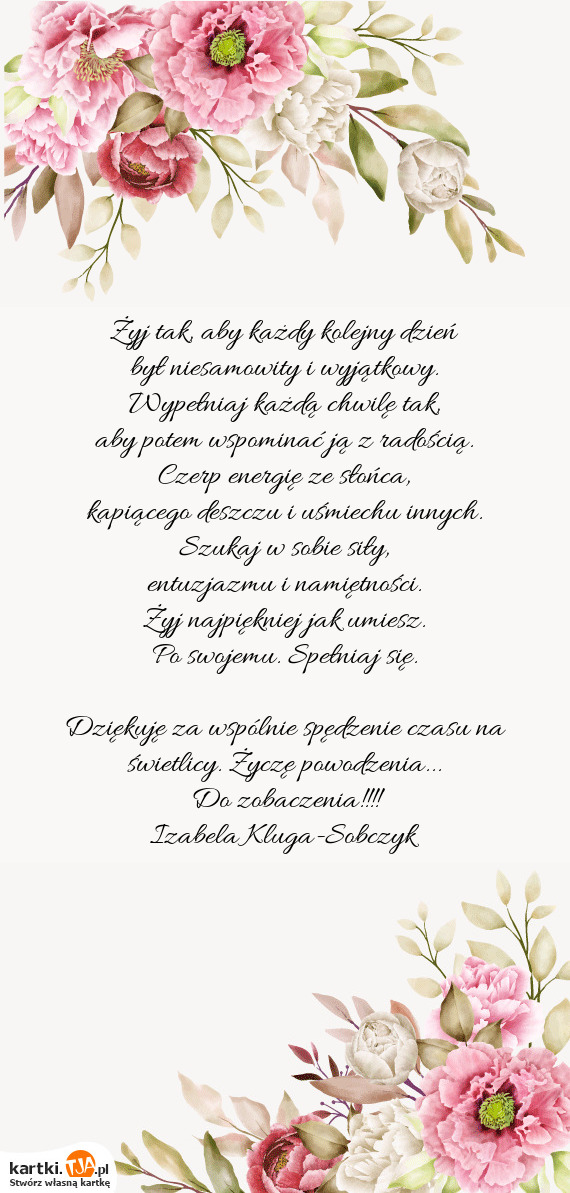 Żyj tak, aby każdy kolejny dzień
był niesamowity i wyjątkowy.
Wypełniaj każdą chwilę tak,
aby potem wspominać ją z radością.
Czerp energię ze słońca,
kapiącego deszczu i uśmiechu innych.
Szukaj w sobie siły,
entuzjazmu i namiętności.
Żyj najpiękniej jak umiesz.
Po swojemu. Spełniaj się.

Dziękuję za wspólnie spędzenie czasu na
świetlicy. Życzę powodzenia...
Do zobaczenia!!!!
Izabela Kluga-Sobczyk
kartki.TJA.pl
Stwórz własną kartkę